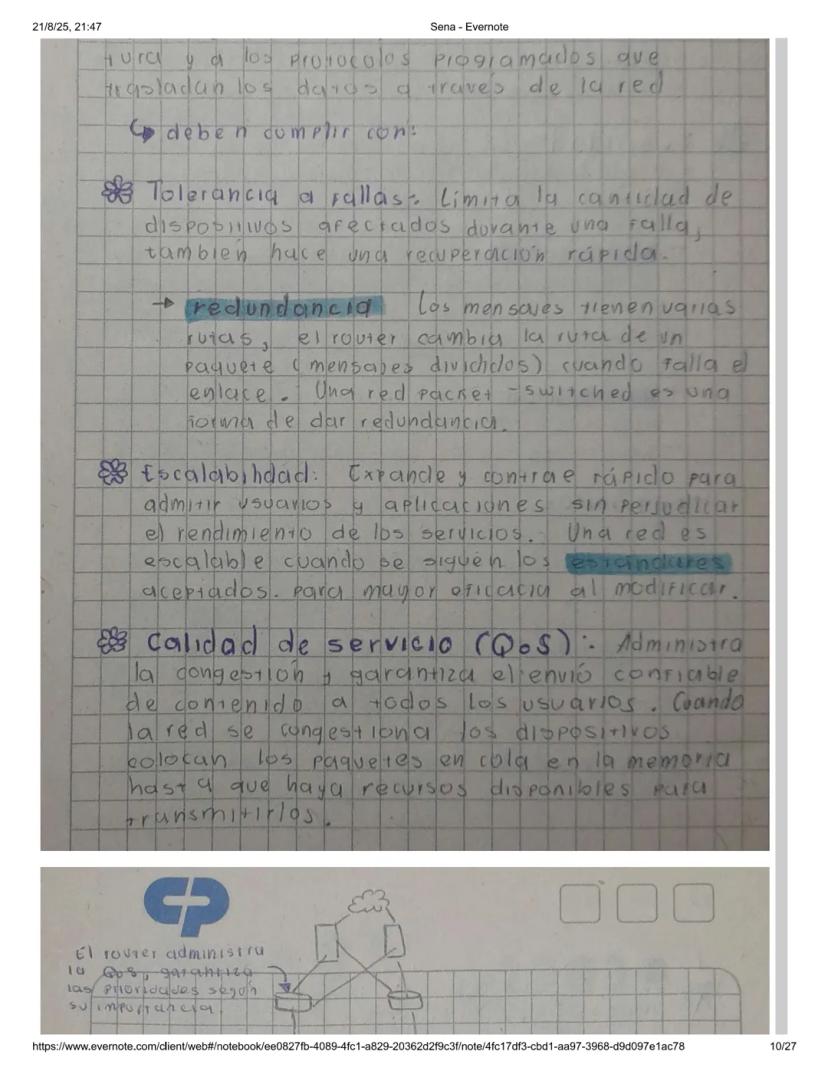 21/8/25, 21:47
Sena - Evernote
tura y a los protocolos programados que
trasladan los datos a través de la red
↳ deben cumplir con:
Tolerancia a fallas: Limita la cantidad de
dispositivos afectados durante una falla,
también hace una recuperación rápida.
→ redundancia Los mensajes tienen varias
rutas, el router cambia la ruta de un
paquete (mensajes divididos) cuando falla el
enlace. Una red packet-switched es una
forma de dar redundancia.
Escalabilidad: Expande y contrae rápido para
admitir usuarios y aplicaciones sin perjudicar
el rendimiento de los servicios. Una red es
escalable cuando se siguen los estándares
aceptados. para mayor eficacia al modificar.
Calidad de servicio (QoS): Administra
la congestión y garantiza el envió confiable
de contenido a todos los usuarios. Cuando
la red se congestiona los dispositivos
colocan los paquetes en cola en la memoria
hasta que haya recursos disponibles para
transmitirlos.
El router administra
la QoS, garantiza
las prioridades según
su importancia
https://www.evernote.com/client/web#/notebook/ee0827fb-4089-4fc1-a829-20362d2f9c3f/note/4fc17df3-cbd1-aa97-3968-d9d097e1ac78
10/27